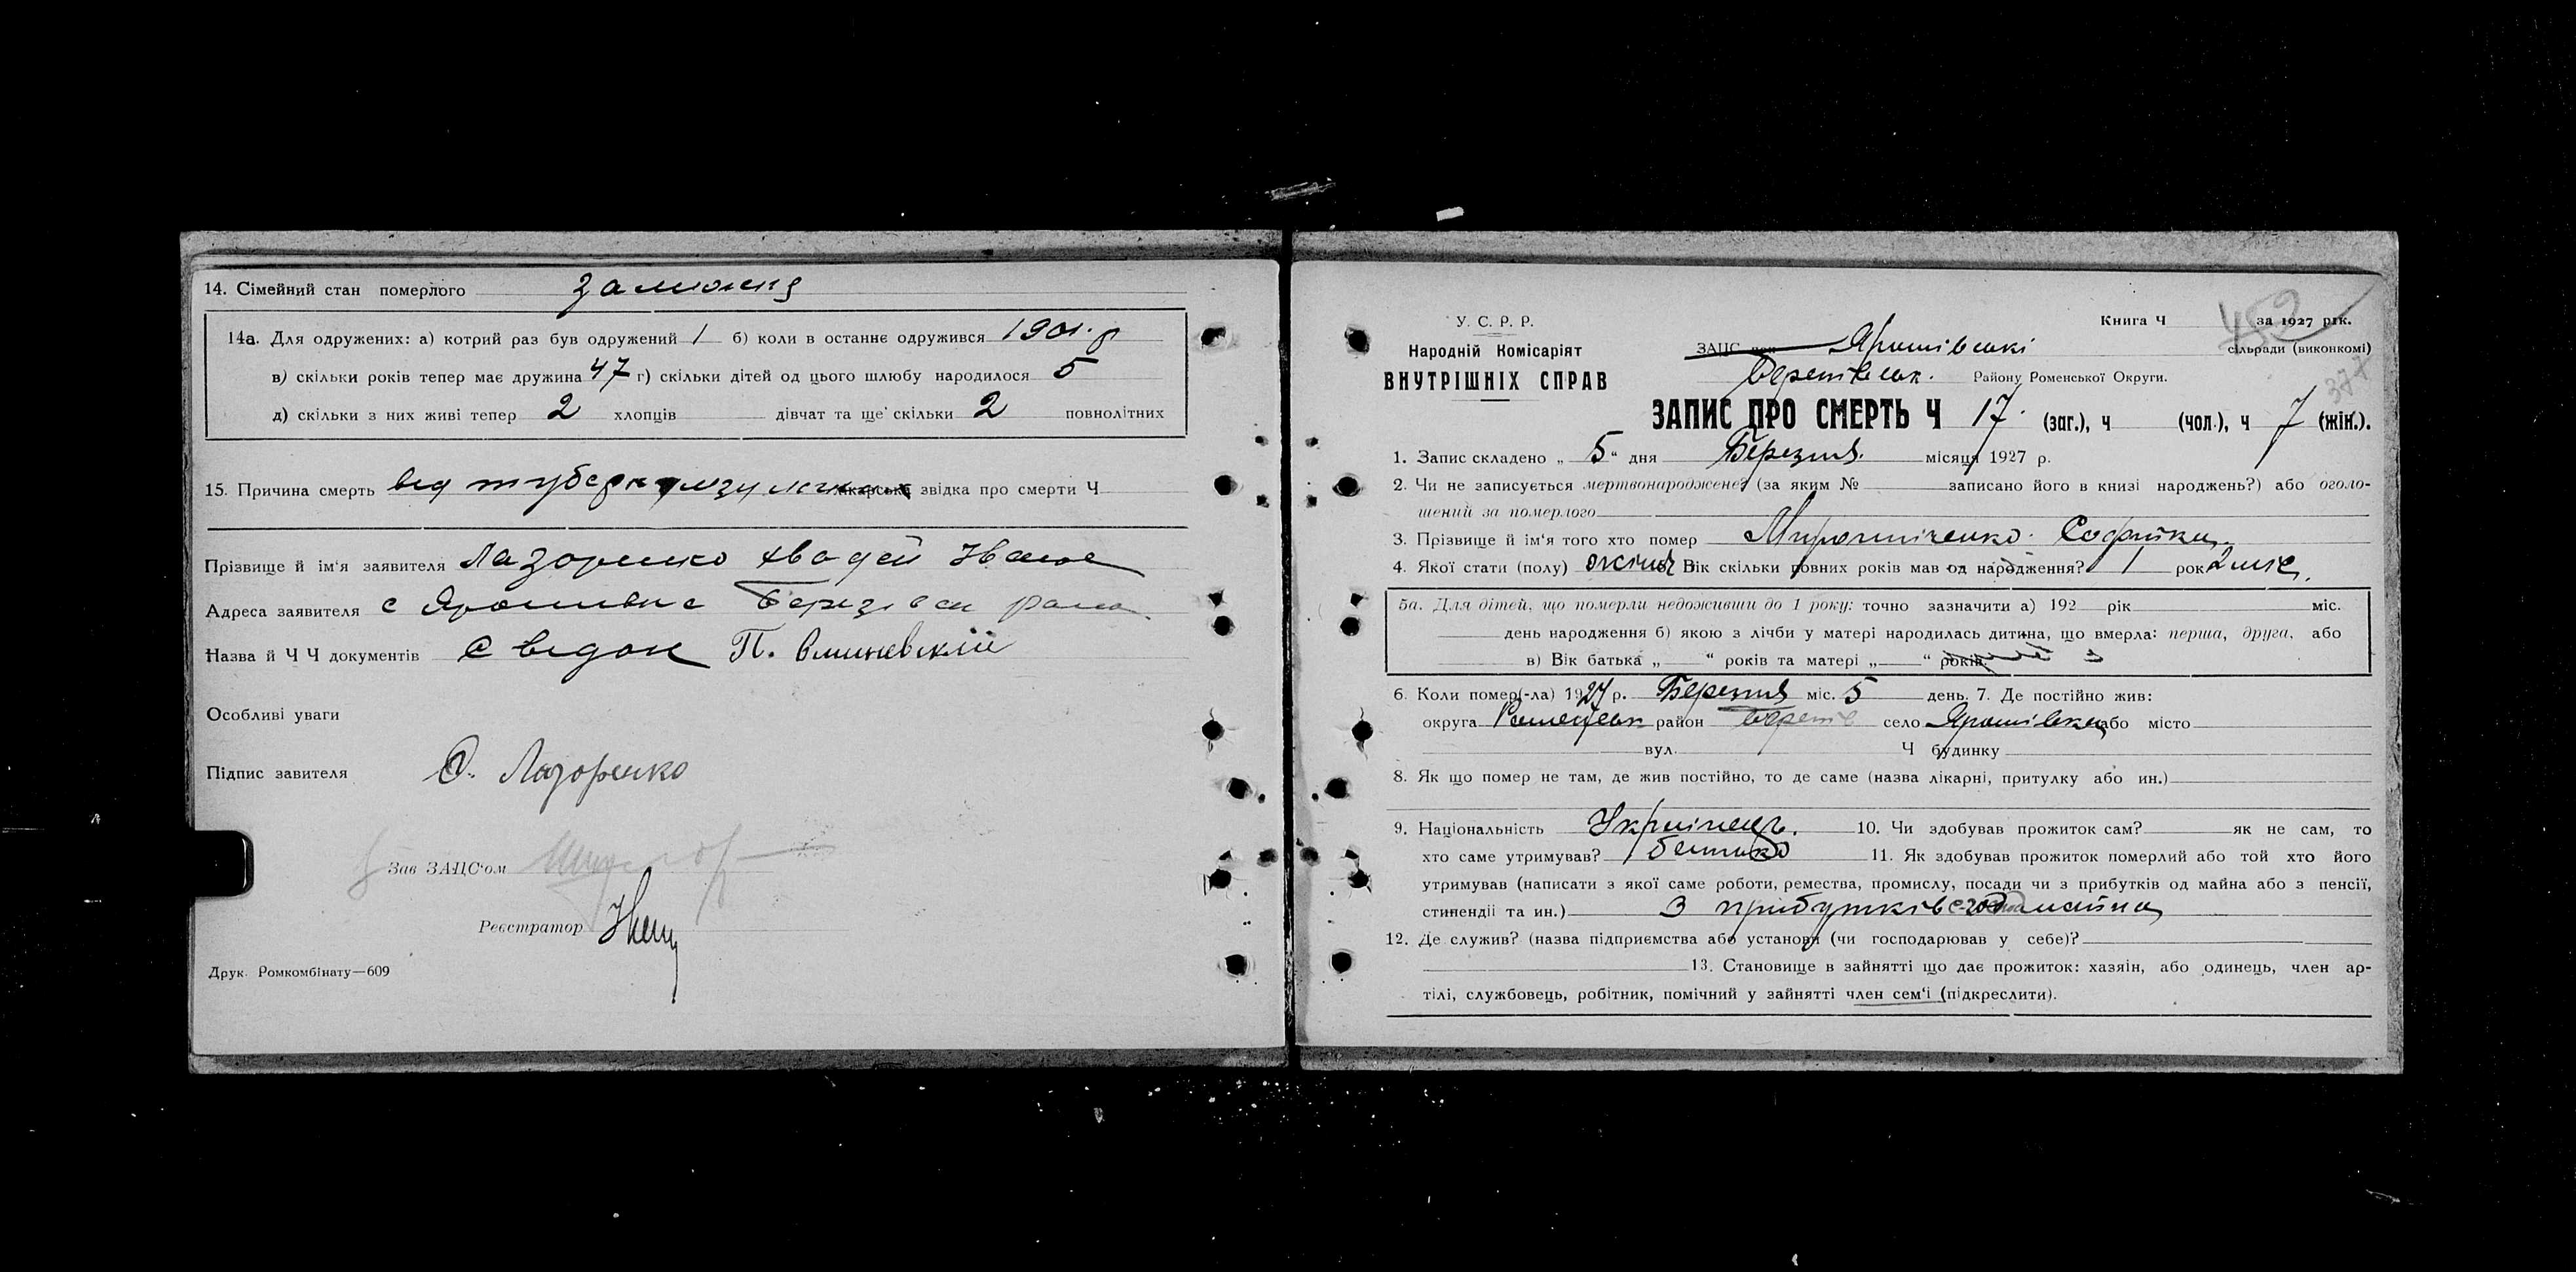 14. Сімейний стан померлого замужня
14а. Для одружених: а) котрий раз був одружений 1 б) коли в останнє одружився 1901 р
в) скільки років тепер має дружина 47 г) скільки дітей од цього шлюбу народилося 5
д) скільки з них живі тепер 2 хлопців дівчат та ще скільки 2 повнолітних
15. Причина смерть від туберкульозу звідка про смерти Ч
Прізвище й ім'я заявителя Лазоренко
Адреса заявителя с
Назва й Ч Ч документів Сведок П.
Особливі уваги
Підпис завителя Лазоренко
Зав ЗАЦС'ом
Реєстратор
Друк. Ромкомбінату—609
У. С. Р. Р.
Народній Комісаріят
ВНУТРІШНІХ СПРАВ
Книга Ч 452 за 1927 рік.
ЗАЦС Ярошівські сільради (виконкомі)
Району Роменської Округи.
377
ЗАПИС ПРО СМЕРТЬ Ч 17. (заг.), ч (чол.), ч 7 (жін.).
1. Запис складено „ 5 “ дня Березня місяця 1927 р.
2. Чи не записується мертвонароджене? (за яким № записано його в книзі народжень?) або оголо-
шений за померлого
3. Прізвище й ім'я того хто помер Мирошніченко Софійка
4. Якої стати (полу) жіноч Вік скільки ровних років мав од народження? 1 рок 2 міс.
5а. Для дітей, що померли недоживши до 1 року: точно зазначити а) 192 рік міс.
день народження б) якою з лічби у матері народилась дитина, що вмерла: перша, друга, або
в) Вік батька „ “ років та матері „ “ років.
6. Коли помер(-ла) 1927 р. Березня міс. 5 день. 7. Де постійно жив:
округа Роменськ район село Ярошівка або місто
вул. Ч будинку
8. Як що помер не там, де жив постійно, то де саме (назва лікарні, притулку або ин.)
9. Національність Українець. 10. Чи здобував прожиток сам? як не сам, то
хто саме утримував? батько 11. Як здобував прожиток померлий або той хто його
утримував (написати з якої саме роботи, ремества, промислу, посади чи з прибутків од майна або з пенсії,
стипендії та ин.) З прибутків майна
12. Де служив? (назва підприємства або установи (чи господарював у себе)?
13. Становище в зайнятті що дає прожиток: хазяін, або одинець, член ар-
тілі, службовець, робітник, помічний у зайнятті член сем'ї (підкреслити).